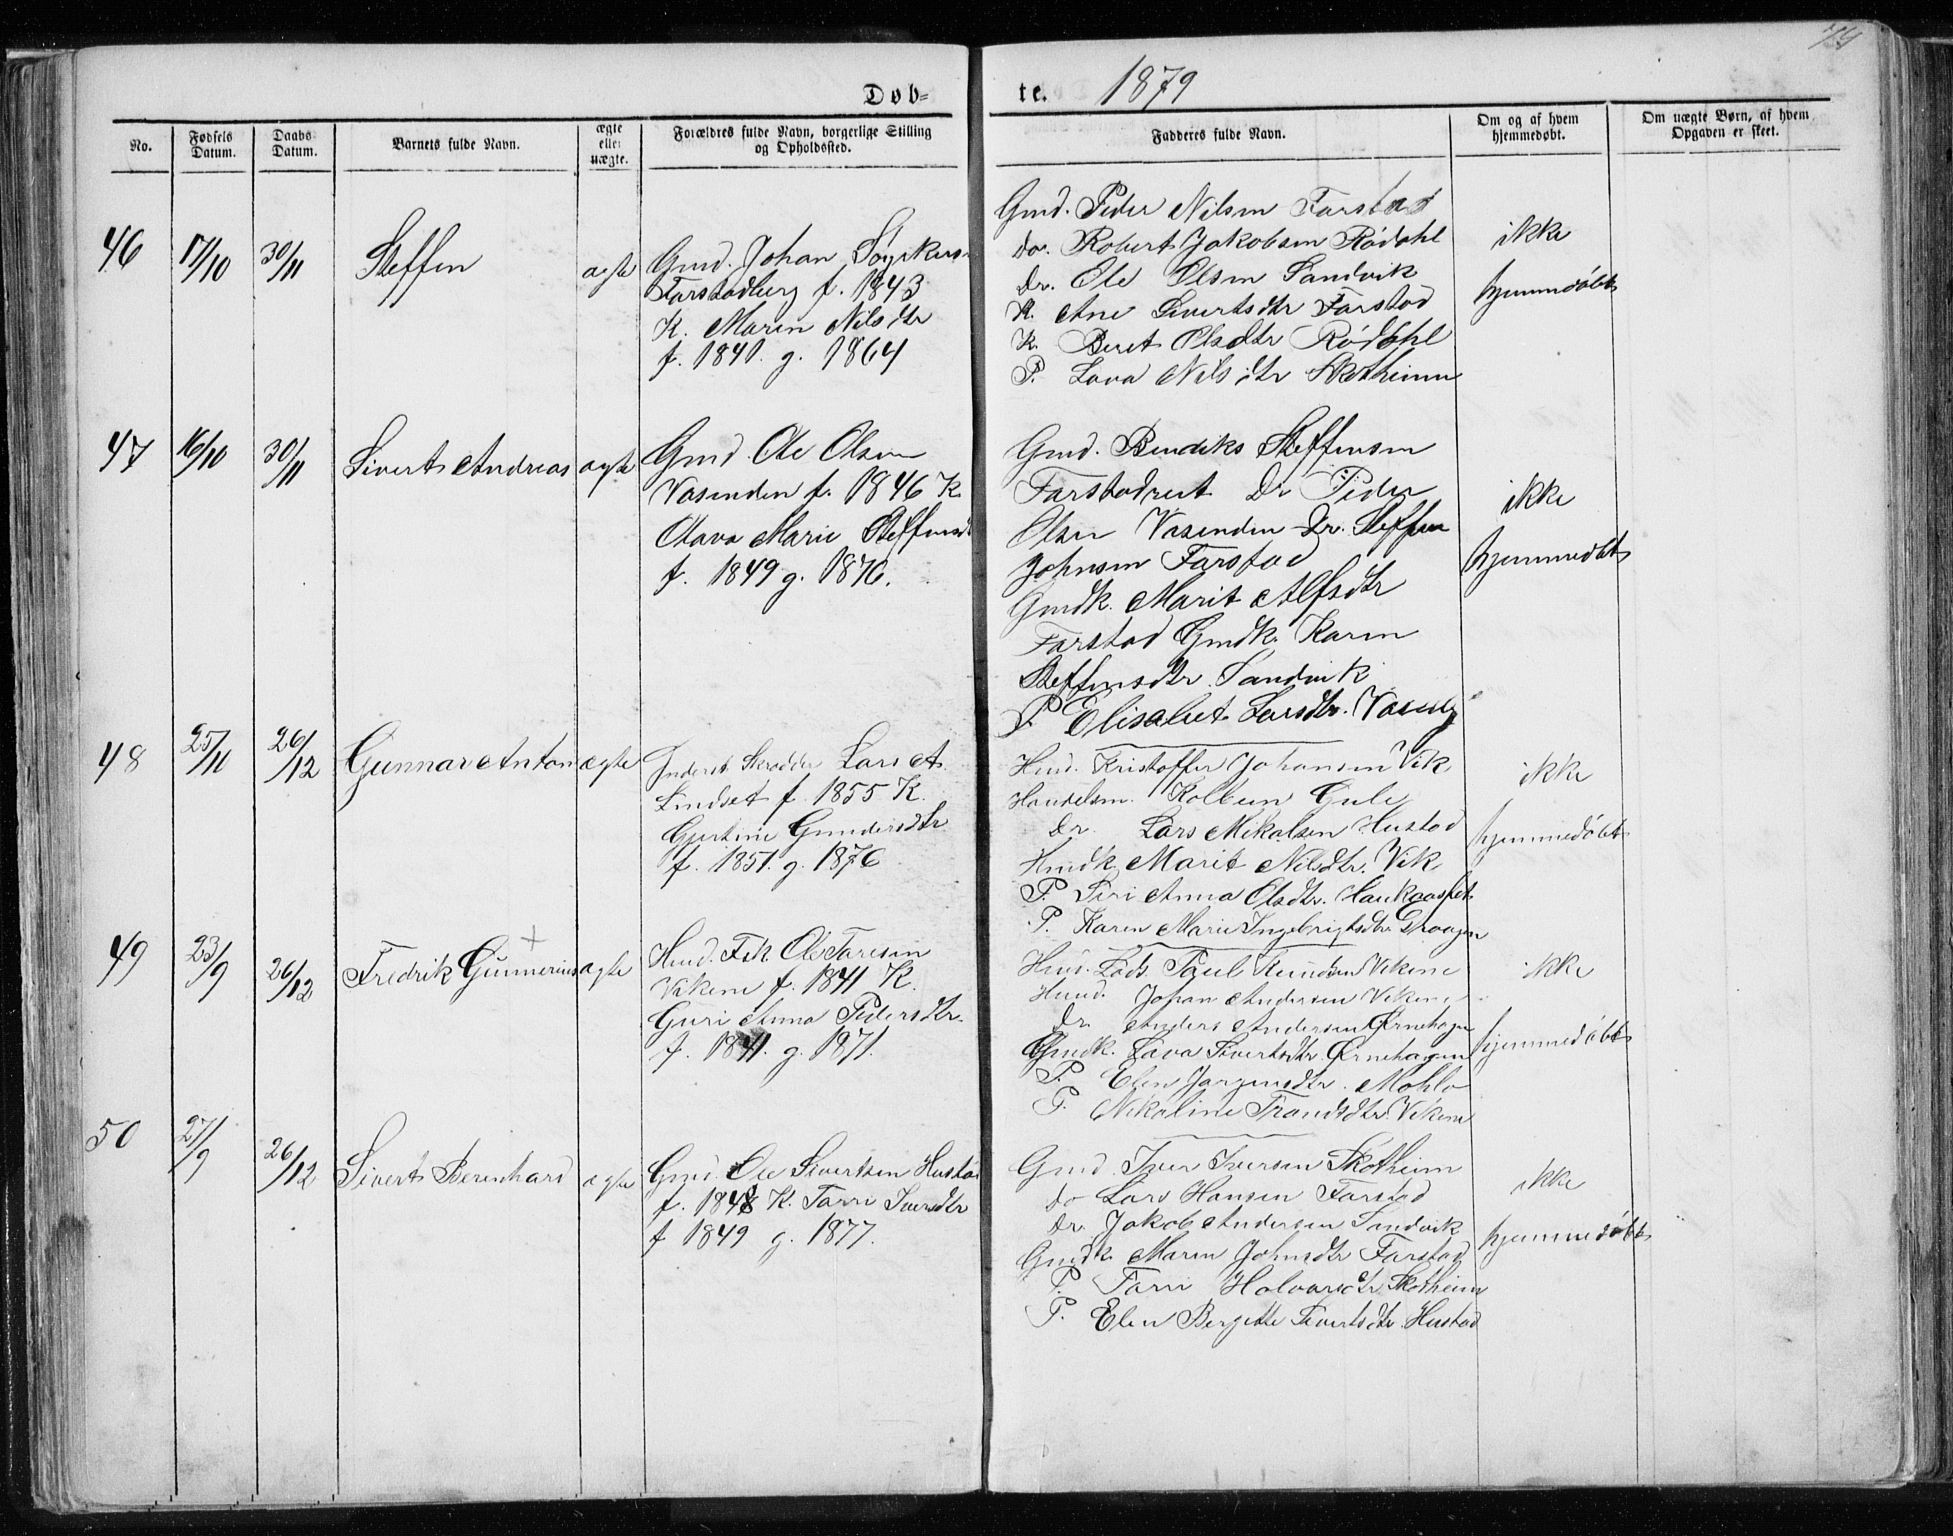 74
Døb=
te. 1879
No.
Fødsels Datum.
Daabs Datum.
Barnets fulde Navn.
ægte eller uægte.
Forældres fulde Navn, borgerlige Stilling og Opholdssted.
Fadderes fulde Navn.
Om og af hvem hjemmedøbt.
Om uægte Børn, af hvem Opgaven er skeet.
46 17/10 30/11 Steffen ægte
Gmd. Johan
Farstadberg f. 1843
K. Maren Nilsdtr
f. 1841. g. 1864
Gmd. Peder Nilsen Farstad
do. Robert Jakobsen Rødahl
Dr. Ole Olsen Sandvik
K. Ane Sivertsdtr Farstad
K. Beret Olsdtr Rødahl
P. Lava Nilsdtr Skotheim
ikke
hjemmedøbt
47 16/10 30/11 Sivert Andreas ægte
Gmd. Ole Olsen
Vasenden f. 1846 K.
Olava Marie Steffensd
f. 1849 g. 1876.
Gmd. Bendiks Steffensen
Farstad Dr Peder
Olsen Vasenden Dr. Steffen
Johnsen Farstad
Gmdk. Marit Alfsdtr
Farstad Gmdk. Karen
Steffensdtr. Sandvik
P. Elisabet Larsdtr.
ikke
hjemmedøbt
48 25/11 26/12 Gunnar Anton ægte
Inderst Skrædder Lars A.
Lindset f. 1855 K.
Gjertine Gundersdtr
f. 1851. g. 1876
Hmd. Kristoffer Johansen Vik
Handelsm. Kolbein Gule
Dr. Lars Mikalsen Hustad
Hmdk Marit Nilsdtr. Vik
P. Siri Anna Olsdtr. Haukaaslet
P. Karen Marie Ingebrigtsdtr
ikke
hjemmedøbt
49 23/9 26/12 Fredrik Gunnerius ægte
Hmd. Fsk Ole Toresen
Vikene f. 1841 K.
Guri Anna Pedersdtr.
f. 1841. g. 1871.
Hmd. Lods. Paul Knudsen Vikene
Hmd. Johan Andersen Vikene
Dr. Anders Andersen Ørnehagen
Gmdk. Lava Sivertsdtr Ørnehagen
P. Elen Jørgensdtr. Mohlo
P. Nikoline Trondsdtr. Vikene
ikke
hjemmedøbt
50 27/9 26/12 Sivert Berenhard ægte
Gmd. Ole Sivertsen Hustad
f. 1848 K. Tarri Iversdtr
f 1849 g. 1877.
Gmd. Iver Iversen Skotheim
do Lars Hansen Farstad
Dr. Jakob Andersen Sandvik
Gmdk Maren Johnsdtr Farstad
P. Tarri Halvorsdtr. Skotheim
P. Elen Bergitte Sivertsdtr. Hustad
ikke
hjemmedøbt